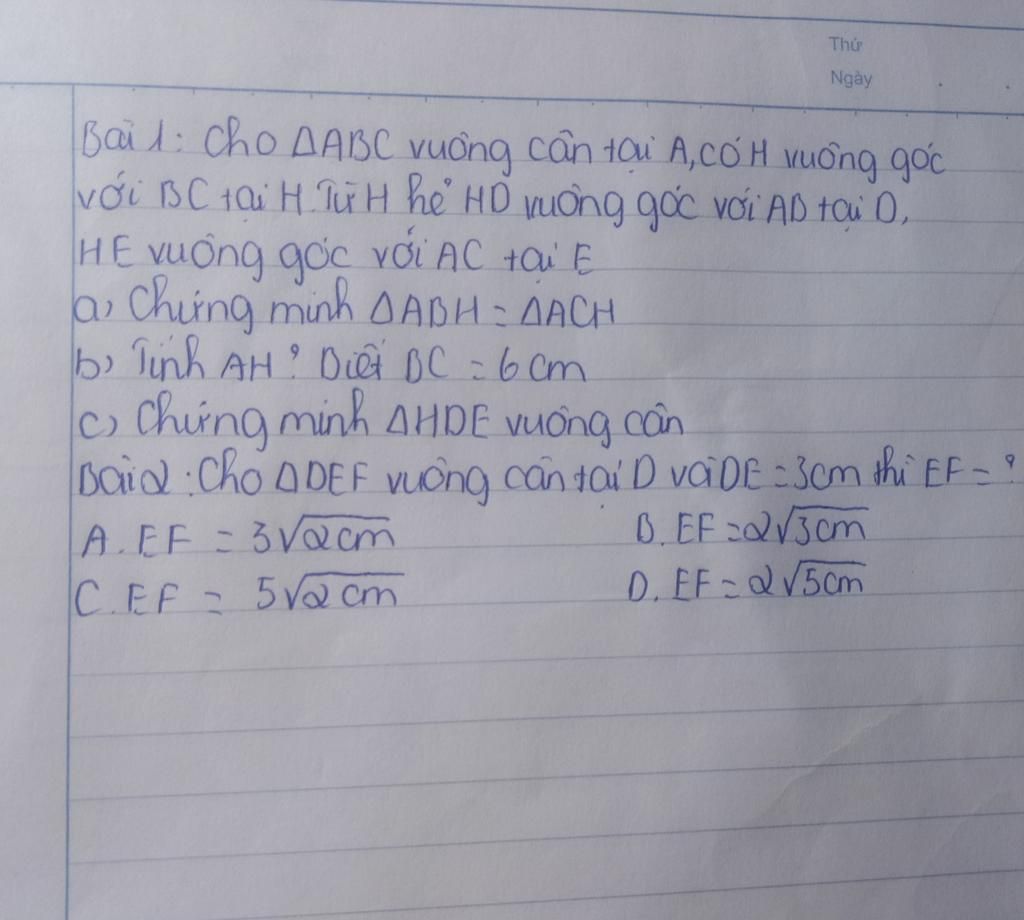 Thứ
Ngày
Bài 1: Cho ΔABC vuông cân tại A, có H vuông góc
với BC tại H. Từ H kẻ HD vuông góc với AB tại D,
HE vuông góc với AC tại E
a) Chứng minh ΔABH = ΔACH
b) Tính AH? Biết BC = 6 cm
c) Chứng minh ΔHDE vuông cân
Bài 2: Cho ΔDEF vuông cân tại D và DE = 3cm thì EF = ?
A. EF = 3√2cm B. EF = 2√3cm
C. EF = 5√2cm D. EF = 2√5cm